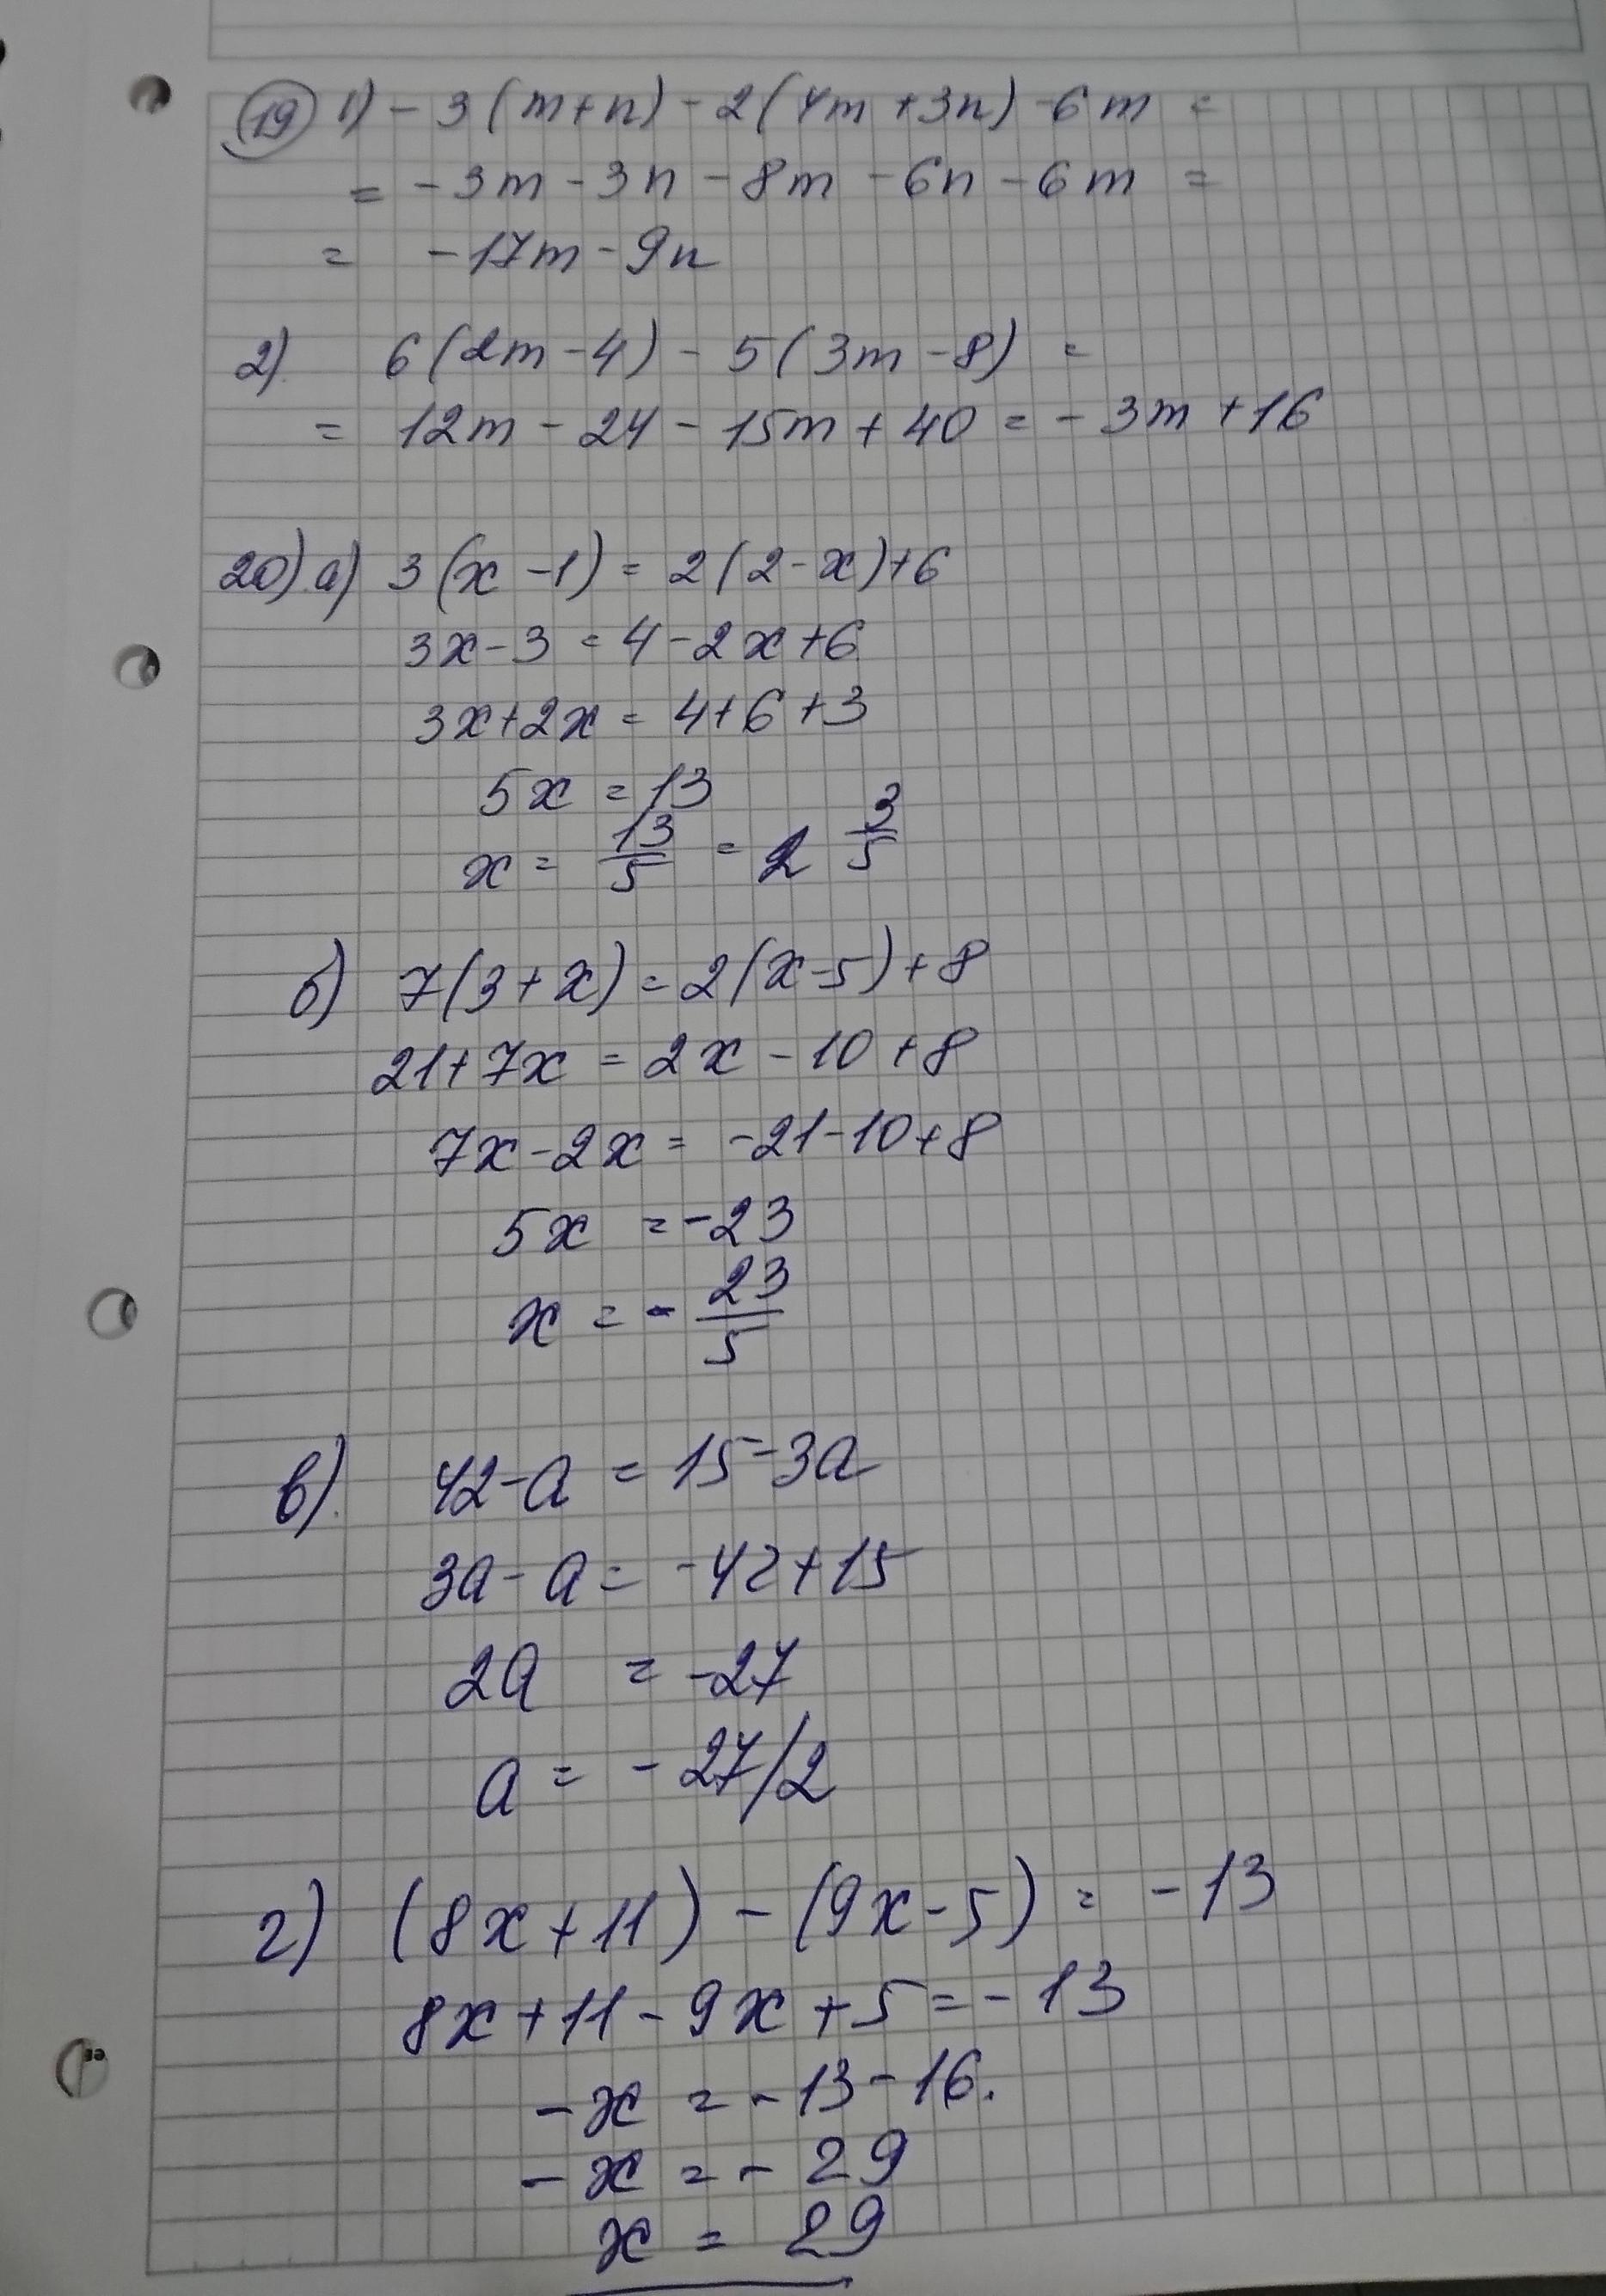 19 1) - 3 (m+n) - 2(4m +3n) -6m =
= -3m -3n -8m -6n -6m =
= -17m -9n
2) 6(2m-4) - 5(3m-8) =
= 12m - 24 - 15m + 40 = -3m +16
20) а) 3(x-1) = 2(2-x)+6
3x-3 = 4-2x+6
3x+2x = 4+6+3
5x = 13
x = 13/5 = 2 3/5
б) 7(3+x) = 2(x-5)+8
21+7x = 2x -10 +8
7x-2x = -21-10+8
5x = -23
x = - 23/5
в) 42-a = 15-3a
3a-a = -42+15
2a = -27
a = -27/2
г) (8x+11) - (9x-5) = -13
8x+11-9x+5 = -13
-x = -13-16.
-x = -29
x = 29